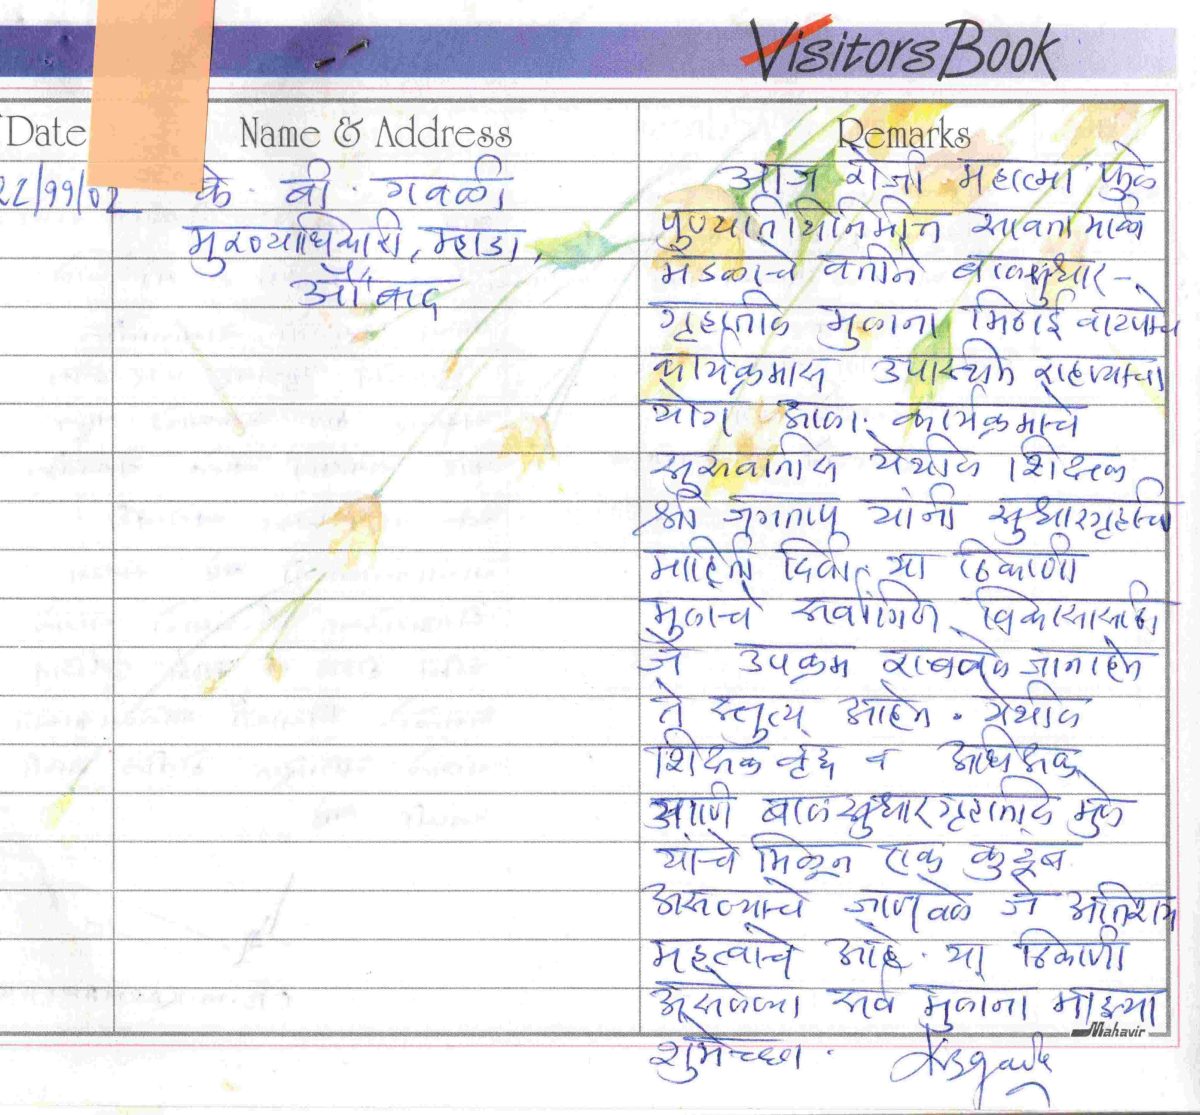 Visitors Book
Date Name & Address Remarks
22/११/02 के. बी. गवळी
मुख्याधिकारी, म्हाडा,
औ'बाद
आज रोजी महात्मा फुले
पुण्यतिथिनिमित्त सावता माळी
मंडळाचे वतीने बालसुधार-
गृहातील मुलांना मिठाई वाटपाचे
कार्यक्रमास उपस्थित राहण्याचा
योग आला. कार्यक्रमाचे
सुरुवातीस येथील शिक्षक
श्री जगताप यांनी सुधारगृहाची
माहिती दिली. या ठिकाणी
मुलांचे सर्वांगिण विकासासाठी
जे उपक्रम राबवले जात आहेत
ते स्तुत्य आहेत. येथील
शिक्षक वृंद व अधिक्षक
आणि बालसुधारगृहातील मुले
यांचे मिळून एक कुटूंब
असल्याचे जाणवले जे अतिशय
महत्वाचे आहे. या ठिकाणी
असलेल्या सर्व मुलांना माझ्या
शुभेच्छा.
Mahavir